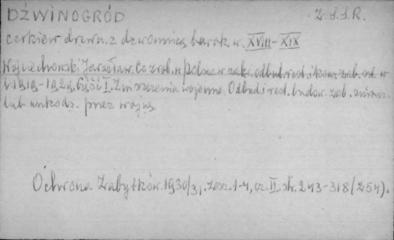 DŹWINOGRÓD Z.S.S.R.
cerkiew drewn. z dzwonnicą barok. w. XVIII-XIX
Wojciechowski Jarosław. Co zrob. w Polsce w zakr. odbud. rest. i kons. zab. od. w
l. 1919-1929. Część I. Zniszczenia wojenne. Odbud. i rest. budow. zab. zniszcz.
lub uszkodz. przez wojnę
Ochrona Zabytków. 1930/31, zesz. 1-4, cz. II. str. 243-318 (254).